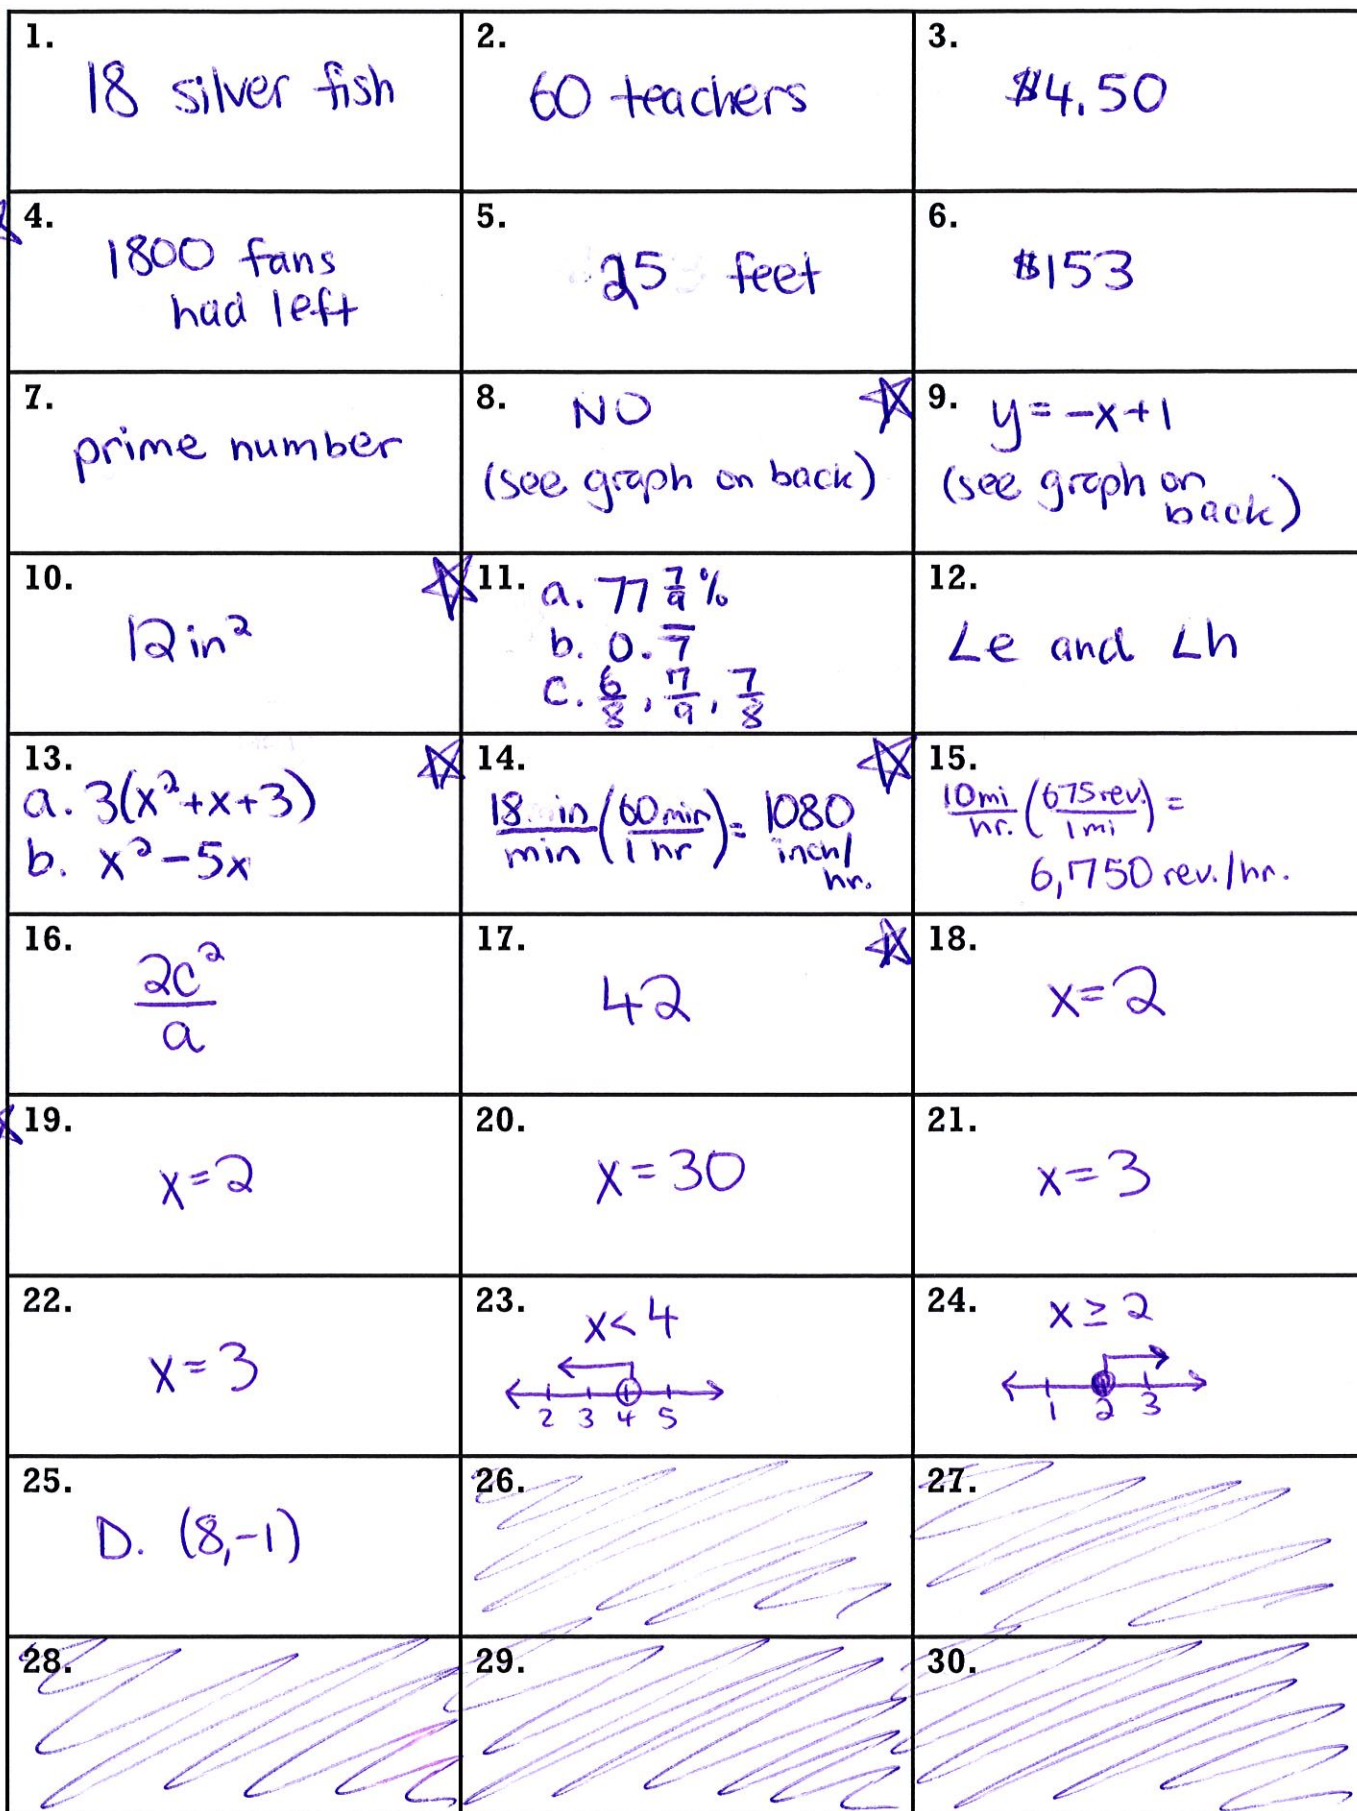 1.
18 silver fish
2.
60 teachers
3.
$4.50
4.
1800 fans
had left
5.
25 feet
6.
$153
7.
prime number
8.
NO
(see graph on back)
9.
y=-x+1
(see graph on
back)
10.
12 in²
11.
a. 77 7/9 %
b. 0.7̅
c. 6/8, 7/9, 7/8
12.
∠e and ∠h
13.
a. 3(x²+x+3)
b. x²-5x
14.
18 in/min (60 min/1 hr) = 1080
inch/
hr.
15.
10mi/hr. (675 rev./1 mi) =
6,750 rev./hr.
16.
2c²/a
17.
42
18.
x=2
19.
x=2
20.
x=30
21.
x=3
22.
x=3
23.
x<4
2 3 4 5
24.
x≥2
1 2 3
25.
D. (8,-1)
26.
27.
28.
29.
30.